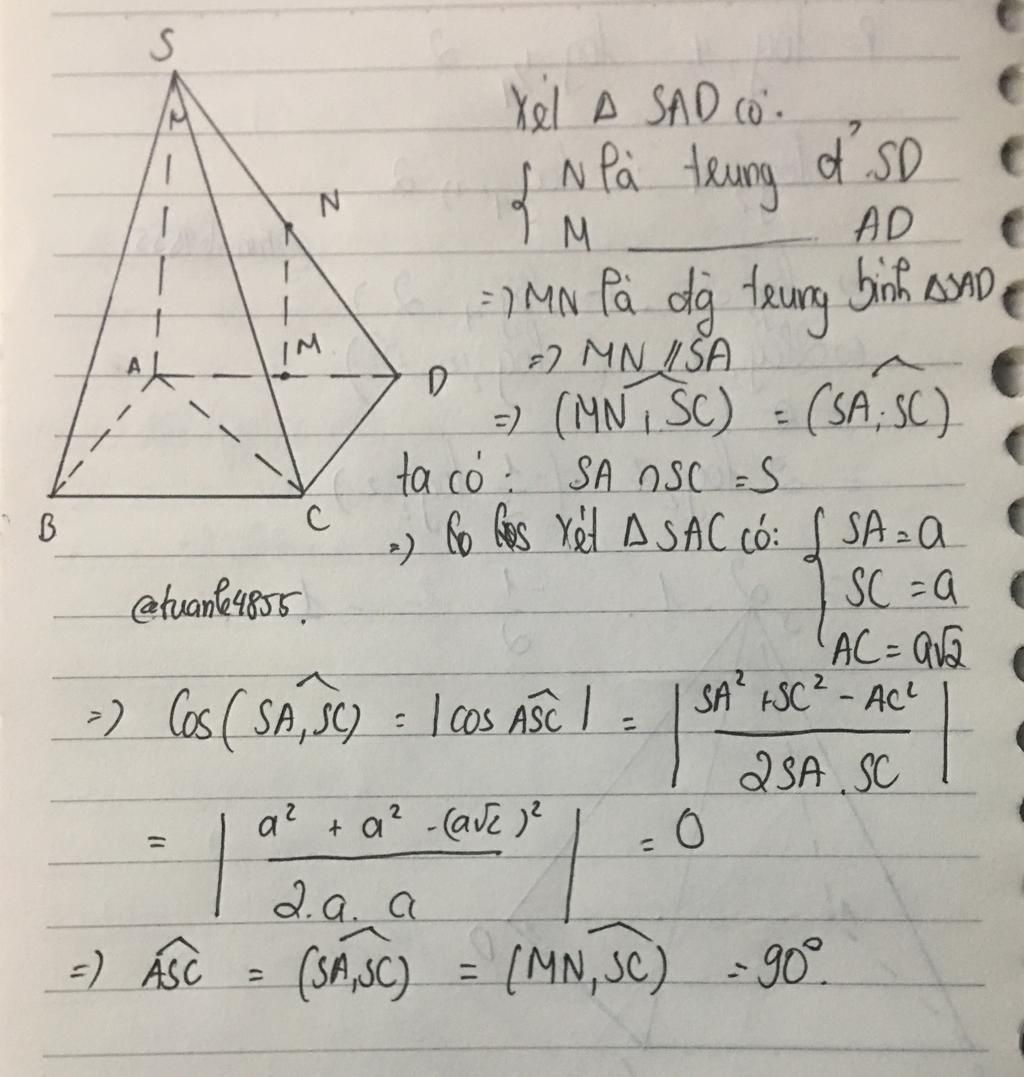 S
N
M
A
D
B
C
Xét Δ SAD có:
{ N là trung đ' SD
M ——— AD
=> MN là đg trung bình ΔSAD
=> MN // SA
=> (MN, SC) = (SA; SC)
ta có: SA ∩ SC = S
=> Xét Δ SAC có: { SA = a
SC = a
AC = a√2
@tuanle4855.
=> Cos(SA, SC) = |cos ASC| = | SA² + SC² - AC² / 2SA . SC |
= | a² + a² - (a√2)² / 2.a. a | = 0
=> ASC = (SA, SC) = (MN, SC) = 90°.